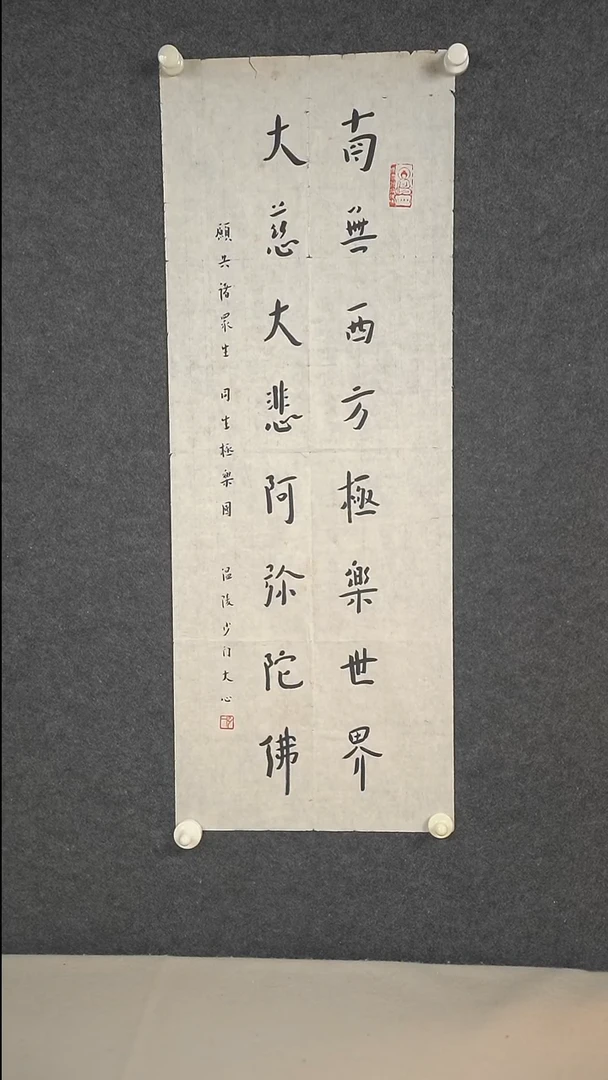 南無西方極樂世界
大慈大悲阿弥陀佛
願共諸眾生 同生極樂國 沙门大心